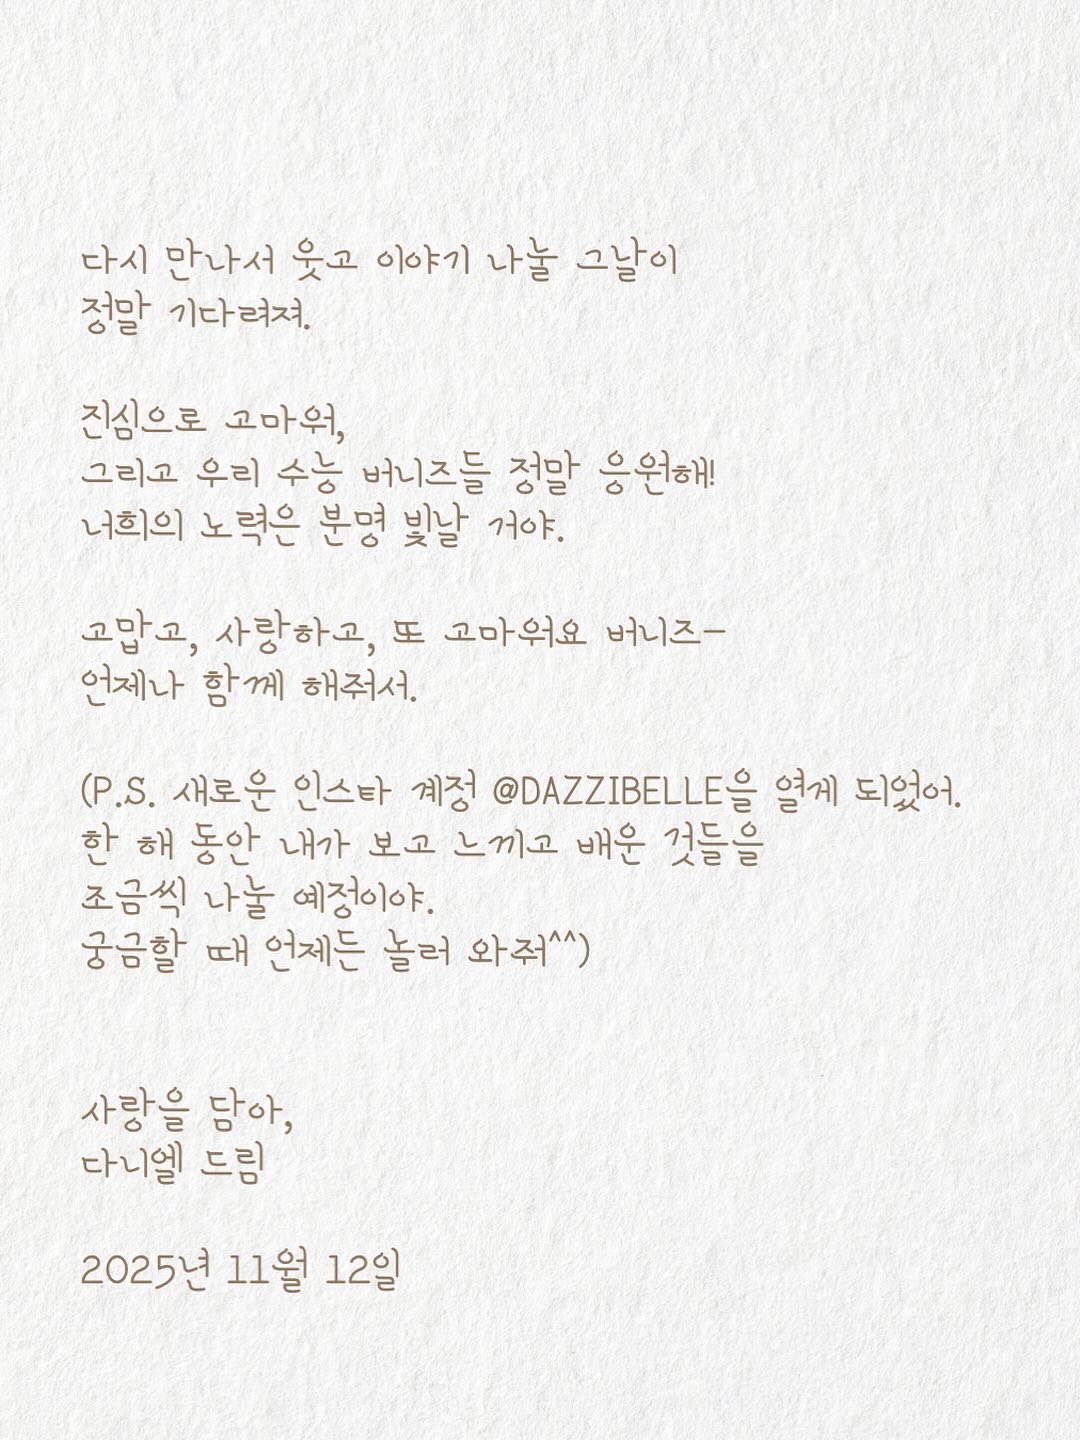 다시 만나서 웃고 이야기 나눌 그날이
정말 기다려져.
진심으로 고마워,
그리고 우리 수능 버니즈들 정말 응원해!
너희의 노력은 분명 빛날 거야.
고맙고, 사랑하고, 또 고마워요 버니즈-
언제나 함께 해줘서.
(P.S. 새로운 인스타 계정 @DAZZIBELLE을 열게 되었어.
한 해 동안 내가 보고 느끼고 배운 것들을
조금씩 나눌 예정이야.
궁금할 때 언제든 놀러 와줘^^)
사랑을 담아,
다니엘 드림
2025년 11월 12일